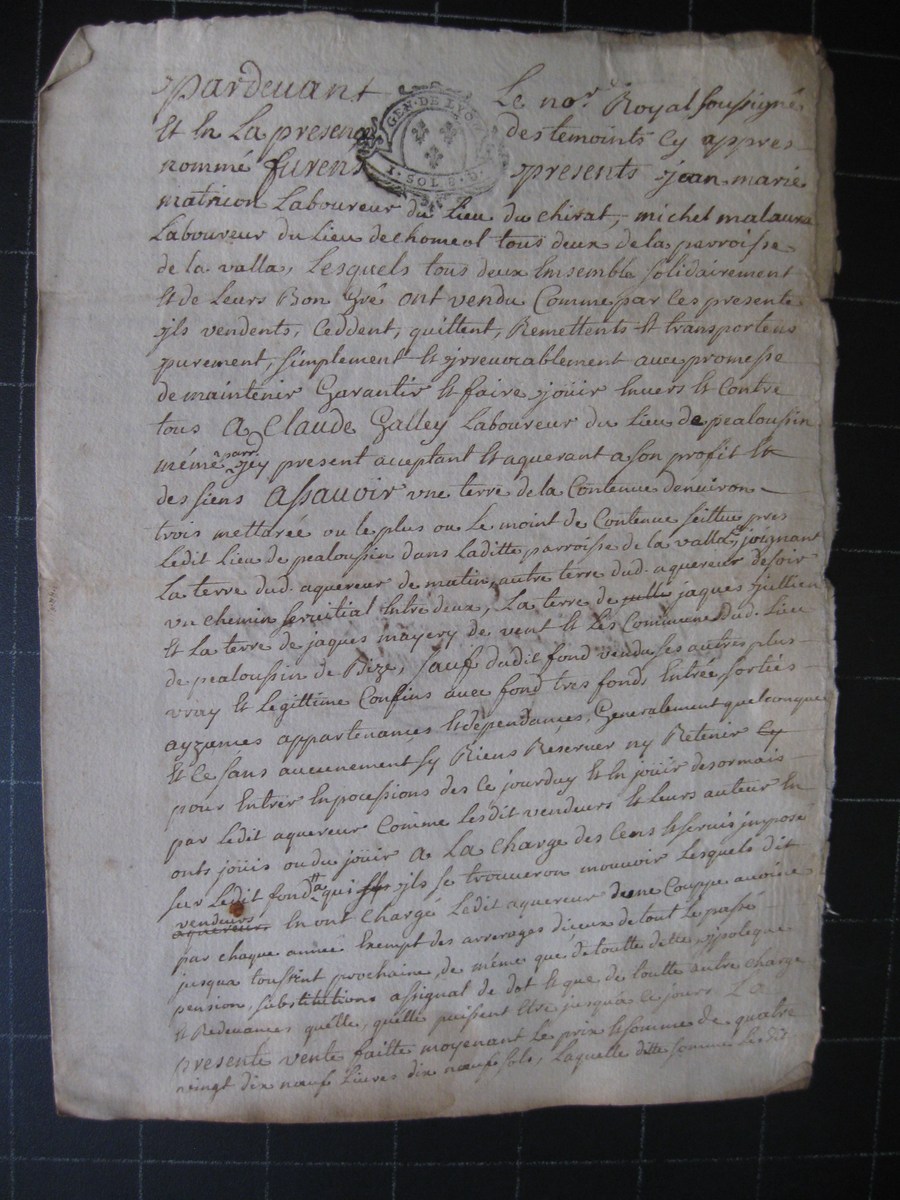 pardevant Le nore Royal soussigné
GEN. DE LYON
1. SOL 8. D.
Et En La presence des temoints Cy appres
nommé furent presents jean marie
matricon Laboureur du Lieu du chirat, michel malaura
Laboureur du Lieu de chomeol tous deux de la parroisse
de la valla, Lesquels tous deux Ensemble solidairement
Et de Leurs Bon Gré ont vendu Comme par Ces presente
ils vendents, Ceddent, quittent, Remettents Et transportens
purement, simplement Et irreuocablement avec promesse
de maintenir Garantir Et faire joüir Envers Et Contre
tous A Claude Galley Laboureur du Lieu de pealoussin
même parr. icy present aceptant Et aquerant a son profit Et
des siens Assauoir vne terre de la Contenue denuiron
trois mettarée ou le plus ou Le moint de Contenue scittue pres
Ledit Lieu de pealoussin dans Laditte parroisse de la valla, joignant
La terre dud. aquereur de matin, autre terre dud. aquereur de soir
vn chemin seruitial Entre deux, La terre de jaques jullien
Et La terre de jaques mayery de vent Et Les Commune dud. Lieu
de pealoussin de Bize, sauf dudit fond vendu ses autres plus
vray Et Legittime Confins avec fond tres fonds Entrée sorties
ayzances appartenances Et dependances, Generalement quelconque
Et Ce sans aucunement sy Riens Reserver ny Retenir
pour Entrer En pocessions des Ce jourduy Et En joüir desormais
par Ledit aquereur Comme Lesdit vendeurs Et Leurs auteur En
onts joüis ou du joüir A La Charge des Cens Et seruis imposé
sur Ledit fond qui ils se trouueron mouuoir Lesquels dit
vendeurs En ont Chargé Ledit aquereur dune Couppe avoine
aquereur
par chaque année Exempt des arrerages diceux de tout Le passé
jusqua toussint prochaine, de même que de toutte dette, ypoteque
pension, substitutions assignal de dot Et que de toutte autre Charge
Et Redevances quelle, quelle puissent Etre jusqua Ce jours La
presente vente faitte moyenant Le prix Et somme de quatre
vingt dix nœuf Livres dix nœuf sols, Laquelle ditte somme Lesdit